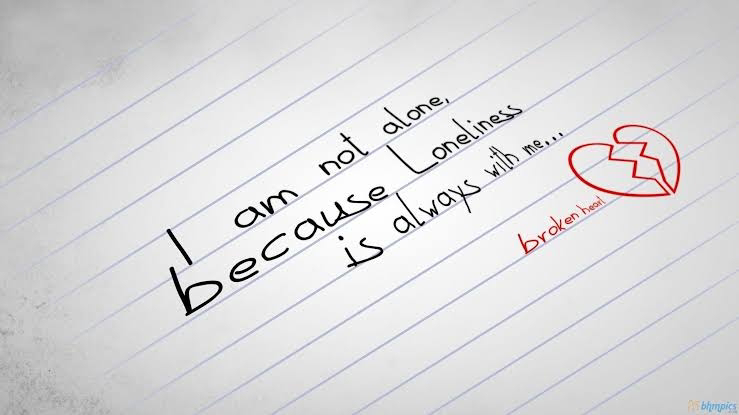 I am not alone,
because Loneliness
is always with me...
broken heart
bhmpics